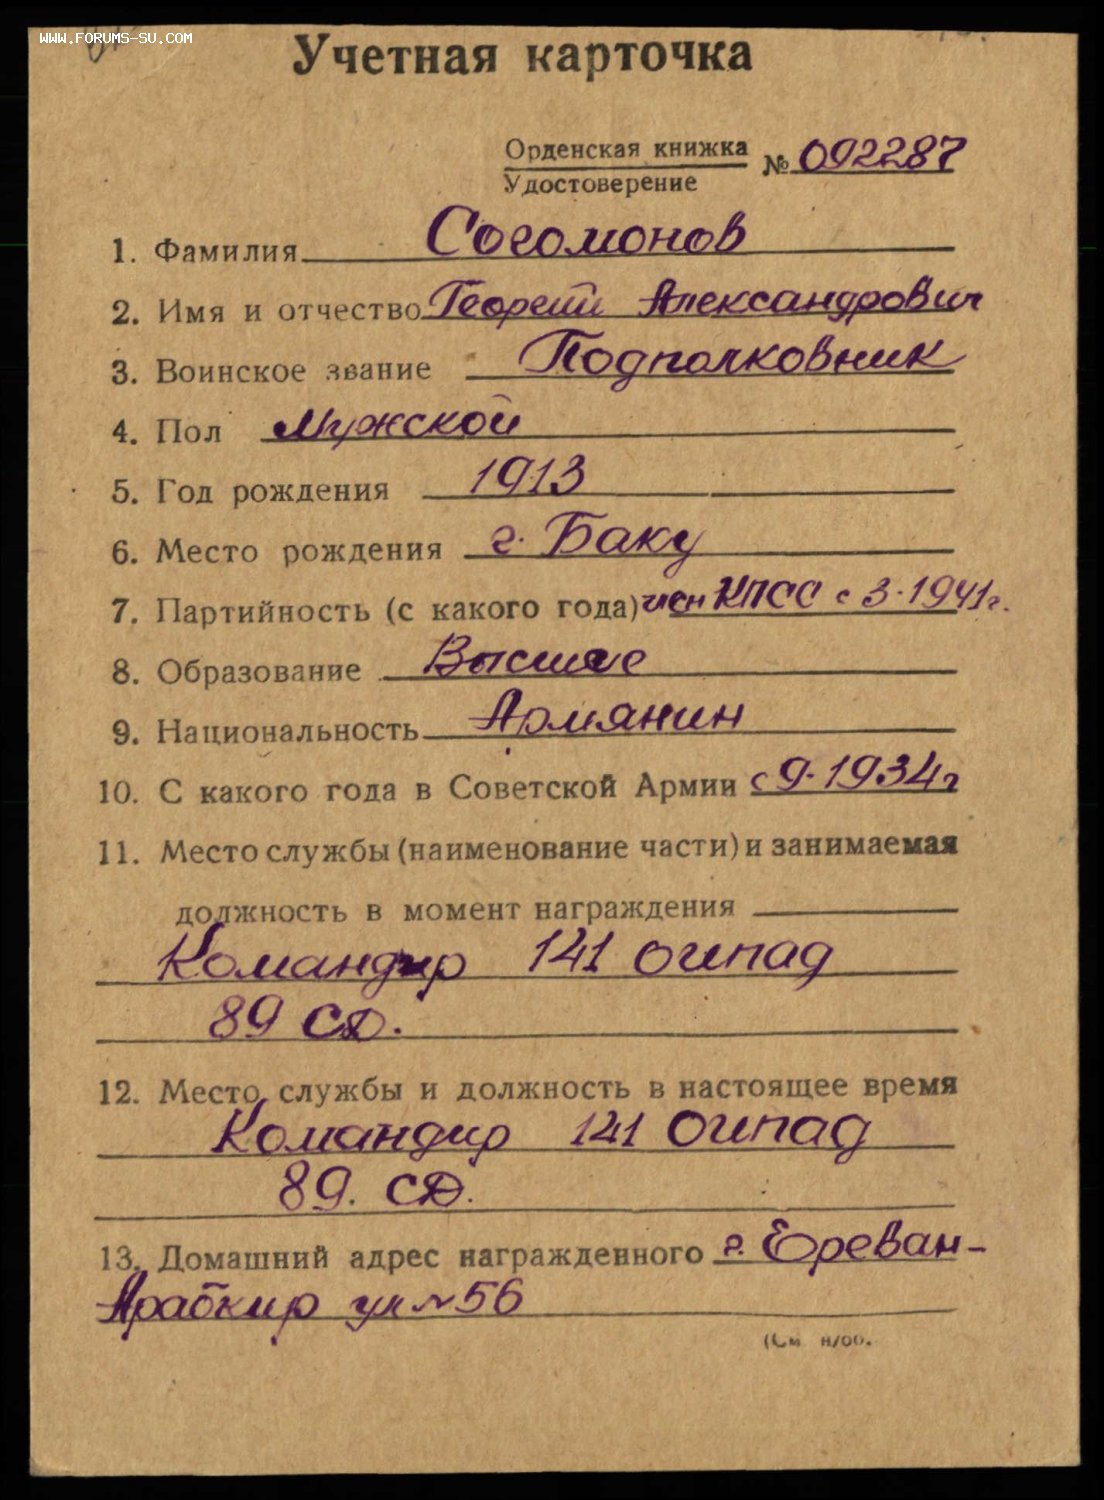 WWW.FORUMS-SU.COM
Учетная карточка
Орденская книжка
Удостоверение
№ 092287
1. Фамилия Согомонов
2. Имя и отчество Георгий Александрович
3. Воинское звание Подполковник
4. Пол Мужской
5. Год рождения 1913
6. Место рождения г. Баку
7. Партийность (с какого года) член КПСС с 3.1941г.
8. Образование Высшее
9. Национальность Армянин
10. С какого года в Советской Армии с 9.1934г
11. Место службы (наименование части) и занимаемая
должность в момент награждения
Командир 141 оипад
89 СД.
12. Место службы и должность в настоящее время
Командир 141 оипад
89. СД.
13. Домашний адрес награжденного г. Ереван-
Арабкир ул №56
(См н/об.